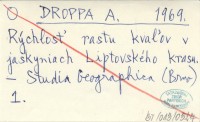 O DROPPA A. 1969.
Rýchlosť rastu kvaľov v
jaskyniach Liptovského krasu.
– Studia Geographica (Brno)
1.